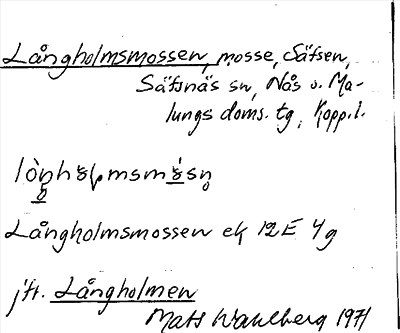 Långholmsmossen, mosse, Säfsen,
Säfsnäs sn, Nås o. Ma-
lungs doms. tg, Kopp.l.
Långholmsmossen ek 12E 4g
jfr. Långholmen
Mats Wahlberg 1971